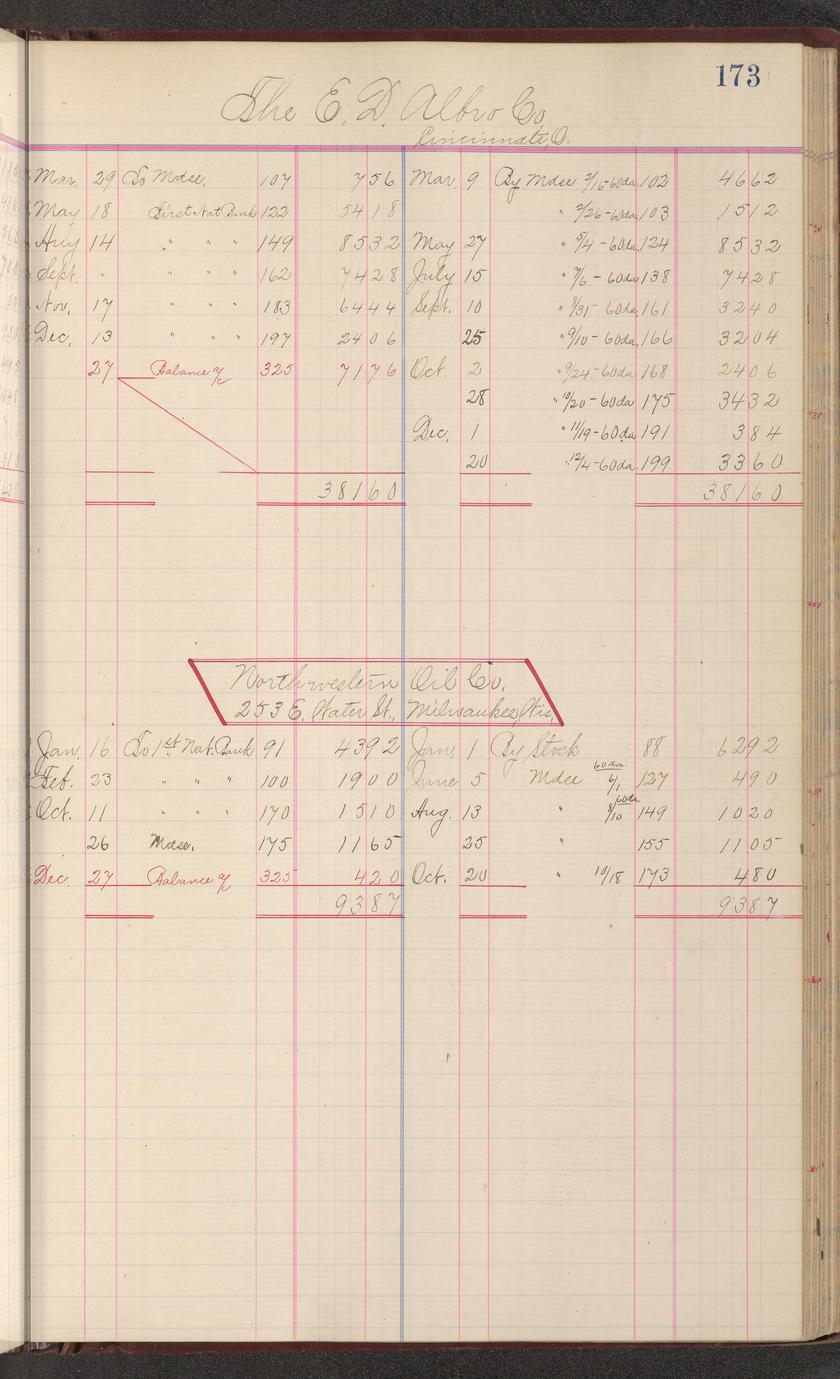 173
The E. D. Albro Co,
Cincinnati, O.
Mar. 29 To Mdse, 107 756 Mar. 9 By Mdse 2/15-60da. 102 4662
May 18 First Nat Bank 122 5418 " 2/26-60da. 103 1512
Aug 14 " " " 149 8532 May 27 " 5/4-60da. 124 8532
Sept. " " " " 162 7428 July 15 " 7/6-60da 138 7428
Nov. 17 " " " 183 6444 Sept. 10 " 8/31-60da, 161 3240
Dec. 13 " " " 197 2406 25 " 9/10-60da, 166 3204
27 Balance a/c 325 7176 Oct. 2 " 9/24-60da 168 2406
28 " 10/20-60da 175 3432
Dec. 1 " 11/19-60da 191 384
20 " 12/4-60da. 199 3360
38160 38160
Northwestern Oil Co.
253 E. Water St., Milwaukee, Wis.
Jan. 16 To 1st Nat. Bank 91 4392 Jan. 1 By Stock 88 6292
Feb. 23 " " " 100 1900 June 5 Mdse 60da. 6/1 127 490
Oct. 11 " " " 170 1510 Aug. 13 " 60da 8/10 149 1020
26 Mdse. 175 1165 25 " 155 1105
Dec. 27 Balance a/c 325 420 Oct. 20 " 10/18 173 480
9387 9387